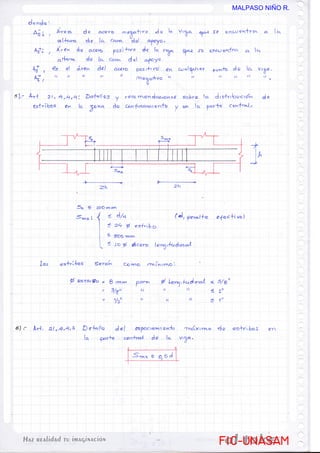 MALPASO NIÑO R.
donde:
As⁻i : Área de acero negativo de la viga que se encuentra a la
altura de la cara del apoyo.
As⁺i : Área de acero positivo de la viga que se encuentra a la
altura de la cara del apoyo.
As⁺ : es el área del acero positivo en cualquier punto de la viga.
As⁻ : " " " " negativo " " " " " .
5).- Art. 21.4.4.4: Detalles y recomendaciones sobre la distribución de
estribos en la zona de confinamiento y en la parte central.
So Smáx
Smáx So
h
2h 2h
So ≤ 50mm
Smáx : { ≤ d/4 (d, peralte efectivo)
≤ 24 Ø estribo
≤ 300mm
≤ 10 Ø acero longitudinal
Los estribos serán como mínimo:
Ø estribo = 8mm para Ø longitudinal ≤ 5/8"
= 3/8" " " " ≤ 1"
= 1/2" " " " > 1"
6).- Art. 21.4.4.6 Detalle del espaciamiento máximo de estribos en
la parte central de la viga.
Smáx ≤ 0,5d
Haz realidad tu imaginación
FIC-UNASAM